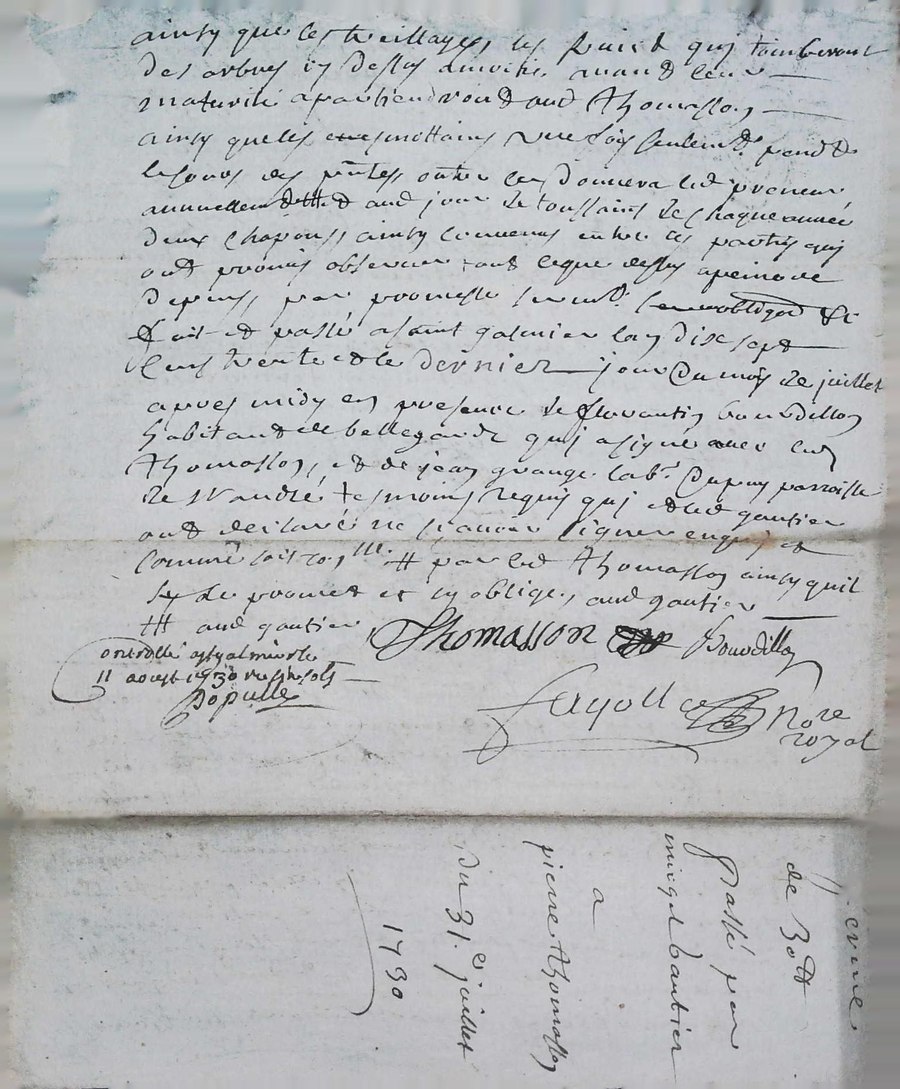 ainsy que les feuillages, les fruict quy tomberont
des arbres cy dessus
maturité apartiendront aud thomasson
ainsy que les une fois seulemt pend
le cours des ptes, outre ce donnera led preneur
annuellemt aud jour de toussaint de chaque année
deux chapons, ainsy convenus entre les parties quy
ont promis observer tout ceque dessus apeine de
depens, par promesse sermt obligaon &c
fait et passé a saint galmier lan dix sept
cens trente et le dernier jour du mois de juillet
apres midy en presence de florantin bourdillon
habitant de bellegarde quy a signé avec led
thomasson, et de jean grange labr parroisse
de st andré tesmoins requis quy et led gautier
ont declaré ne scavoir signer enquis et
comme soit par led thomasson ainsy quil
promet et sy oblige, aud gautier
aud gautier
Thomasson Bourdillon
controllé a st galmier le
11 aoust 1730
Populle
fayolle nore
royal
de 30tt
passé par
gautier
a
pierre thomasson
du 31.e juillet
1730